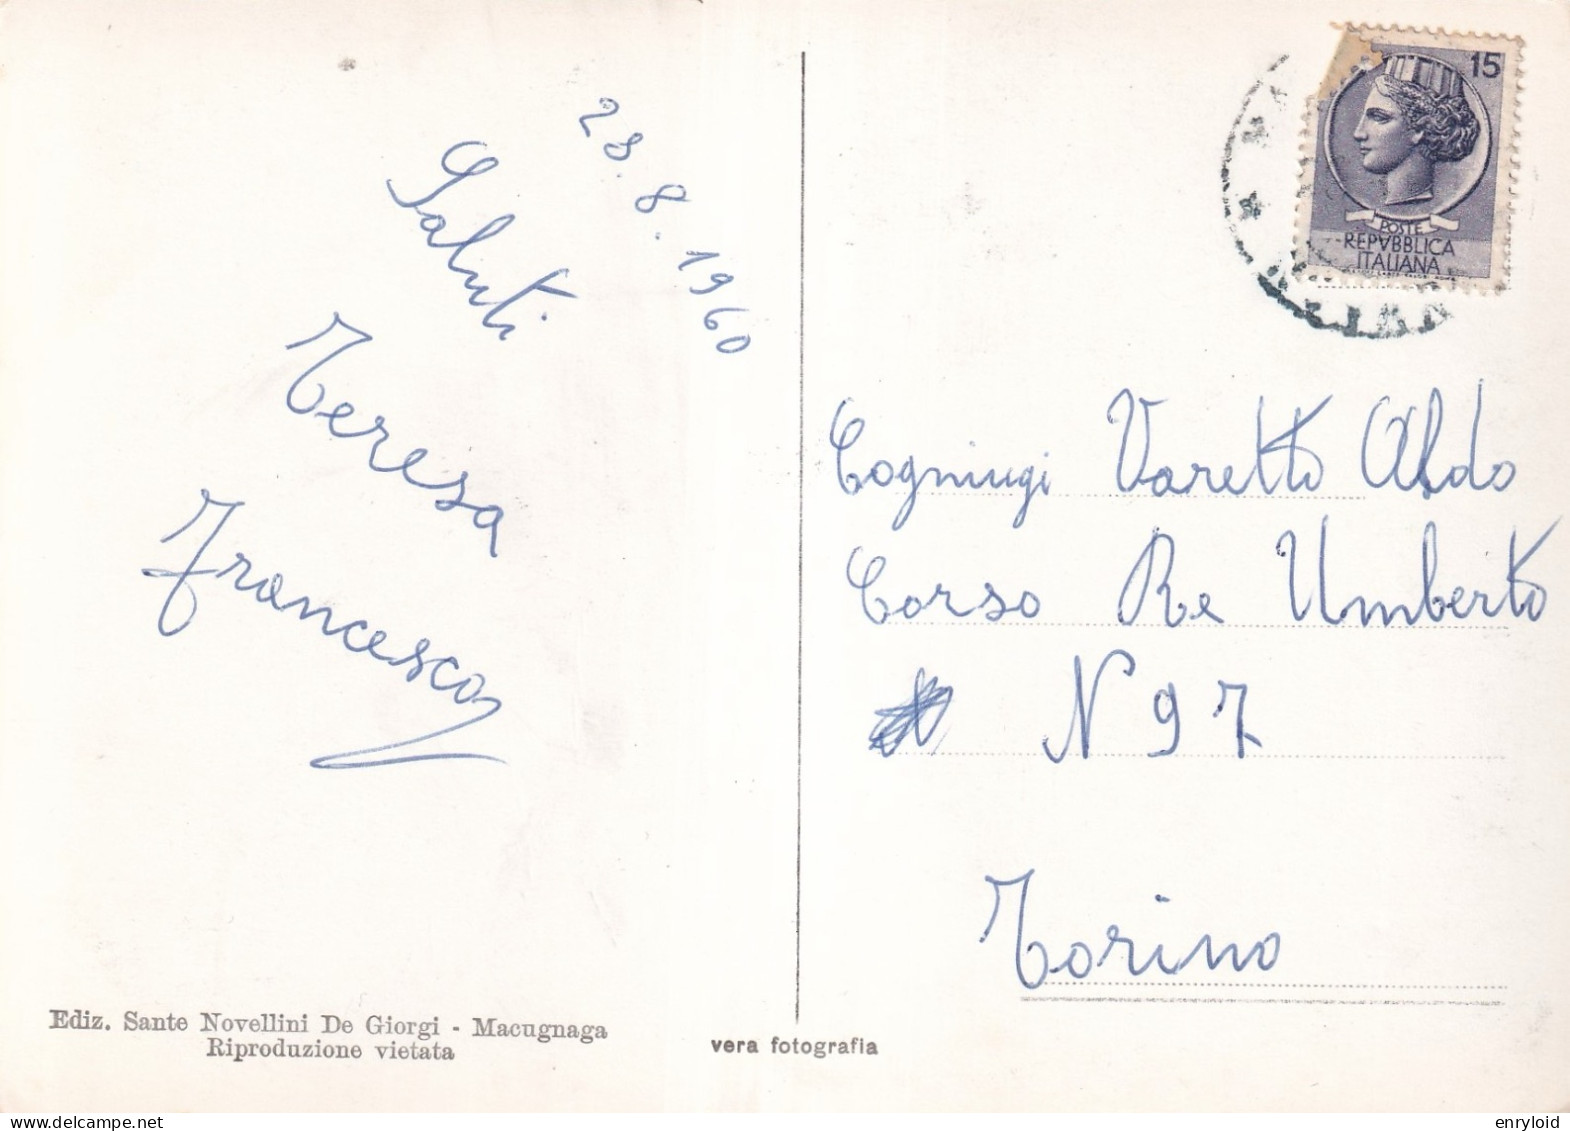 28.8.1960
Saluti
Teresa
Francesco
Ediz. Sante Novellini De Giorgi - Macugnaga
Riproduzione vietata
vera fotografia
15
POSTE
REPVBBLICA
ITALIANA
Cogniugi Varetto Aldo
Corso Re Umberto
N 97
Torino
enryloid